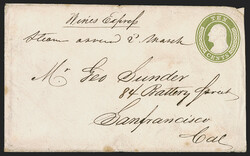 Wines Express
Steam ascend 2 March
TEN
CENTS
Mr Geo Sunder
84 Battery Street
Sanfrancisco
Cal